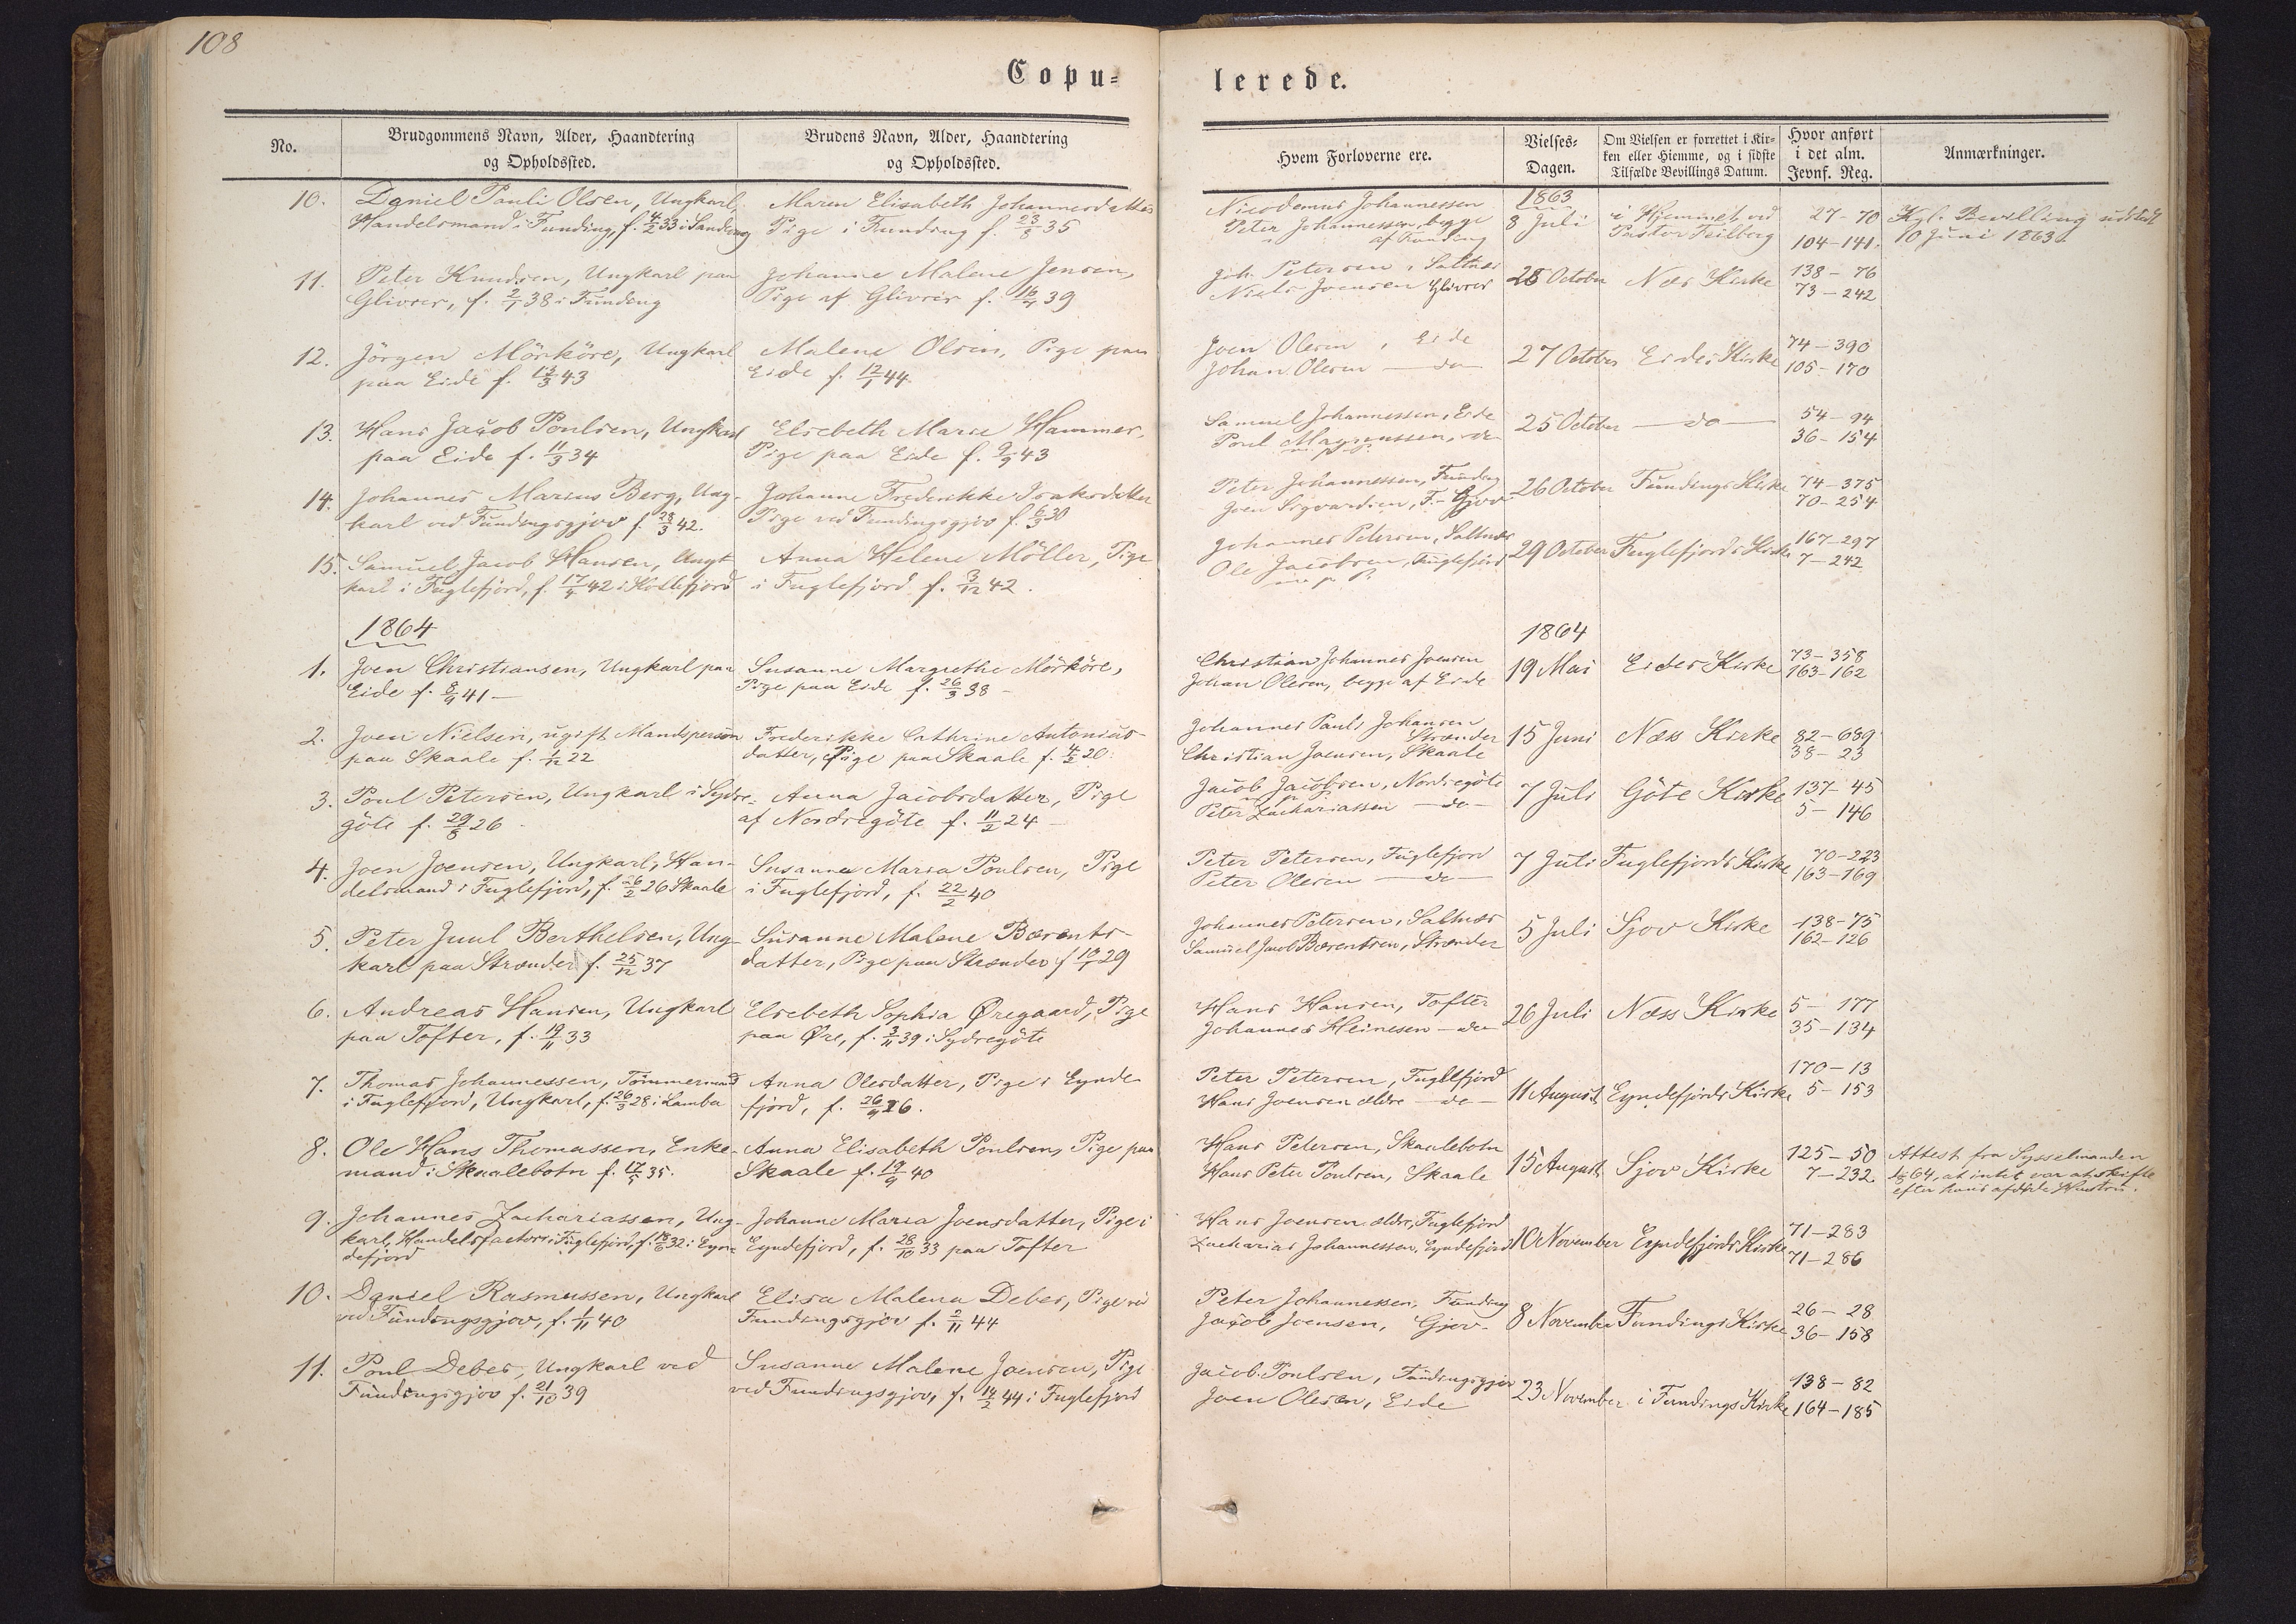 108
Copu=
lerede.
No.
Brudgommens Navn, Alder, Haandtering
og Opholdssted.
Brudens Navn, Alder, Haandtering
og Opholdssted.
Hvem Forloverne ere.
Vielses-
Dagen.
Om Vielsen er forrettet i Kir-
ken eller Hiemme, og i sidste
Tilfælde Bevillings Datum.
Hvor anført
i det alm.
Jevnf. Reg.
Anmærkninger.
10. Daniel Pauli Olsen, Ungkarl,
Handelsmand i Funding, f. 4/2 33 i
Maren Elisabeth Johannesdatter
Pige i Funding f. 23/8 35
Nicodemus Johannessen
Peter Johannessen, begge
af Funding
1863
8 Juli
i Hjemmet ved
Pastor Feilberg
27-70
104-141.
Kgl. Bevilling udstedt
10 Juni 1863.
11. Peter Knudsen, Ungkarl paa
Glivrer, f. 2/1 38 i Funding
Johanne Malene Jensen,
Pige af Glivrer f. 16/4 39
Joh. Petersen, Saltnes
Niels Joensen Glivrer
25 October
Næs Kirke
138-76
73-242
12. Jörgen Mörköre, Ungkarl
paa Eide f. 13/3 43
Malene Olsen, Pige paa
Eide f. 12/1 44.
Joen Olesen, Eide
Johan Olesen — do —
27 October
Eides Kirke
74-390
105-170
13. Hans Jacob Poulsen, Ungkarl
paa Eide f. 11/3 34
Elsebeth Marie Hammer,
Pige paa Eide f. 9/9 43
Samuel Johannessen, Eide
Poul Magnussen, do
25 October
— do —
54-94
36-154
14. Johannes Marius Berg, Ung-
karl ved Fundingsgjov f. 28/3 42.
Johanne Frederikke Isaksdatter
Pige ved Fundingsgjov f. 6/3 30
Peter Johannessen, Funding
Joen Sigvardsen, F.- Gjov
26 October
Fundings Kirke
74-375
70-254
15. Samuel Jacob Hansen, Ung-
karl i Fuglefjord, f. 17/4 42 i Kollefjord
Anna Helene Möller, Pige
i Fuglefjord f. 3/12 42.
Johannes Petersen, Saltnes
Ole Jacobsen, Fuglefjord
29 October
Fuglefjords Kirke
167-297
7-242
1864
1864
1. Joen Christiansen, Ungkarl paa
Eide f. 8/9 41 —
Susanne Margrethe Mörköre,
Pige paa Eide f. 26/3 38 —
Christian Johannes Joensen
Johan Olesen, begge af Eide
19 Mai
Eides Kirke
73-358
163-162
2. Joen Nielsen, ugift Mandsperson
paa Skaale f. 1/12 22
Frederikke Cathrine Antonius-
datter, Pige paa Skaale f. 4/2 20.
Johannes Pauli Johansen
Strænder
Christian Joensen, Skaale
15 Juni
Næss Kirke
82-689
38-23
3. Poul Petersen, Ungkarl i Sydre-
göte f. 29/8 26 -
Anna Jacobsdatter, Pige
af Nordregöte f. 11/2 24 —
Jacob Jacobsen, Nordregöte
Peter Zachariassen — do —
7 Juli
Göte Kirke
137-45
5-146
4. Joen Joensen, Ungkarl, Han-
delsmand i Fuglefjord, f. 26/2 26 Skaale
Susanne Maria Poulsen, Pige
i Fuglefjord, f. 22/2 40
Peter Petersen, Fuglefjord
Peter Olesen — do —
7 Juli
Fuglefjords Kirke
70-223
163-169
5. Peter Juul Berthelsen, Ung-
karl paa Strænder f. 25/12 37
Susanne Malene Bærents-
datter, Pige paa Strænder f 10/1 29
Johannes Petersen, Saltnes
Samuel Jacob Bærentsen, Strænder
5 Juli
Sjov Kirke
138-75
162-126
6. Andreas Hansen, Ungkarl
paa Tofter, f. 19/11 33
Elsebeth Sophia Øregaard, Pige
paa Øre, f. 3/11 39 i Sydregöte
Hans Hansen, Tofter
Johannes Heinesen — do
26 Juli
Næss Kirke
5-177
35-134
7. Thomas Johannessen, Tömmermand
i Fuglefjord, Ungkarl, f. 26/3 28 i Lamba
Anna Olesdatter, Pige i Eynde-
fjord, f. 26/4 26.
Peter Petersen, Fuglefjord
Hans Joensen ældre — do —
11 August
Eyndefjords Kirke
170-13
5-153
8. Ole Hans Thomassen, Enke-
mand i Skaalebotn f. 17/5 35.
Anna Elisabeth Poulsen, Pige paa
Skaale f. 19/9 40
Hans Petersen, Skaalebotn
Hans Peter Poulsen, Skaale
15 August
Sjov Kirke
125-50
7-232.
Attest fra Sysselmanden
64, at intet var at skifte
efter hans afdøde Hustru.
9. Johannes Zachariassen, Ung-
karl, Handelsfactor i Fuglefjord, f. 18/6 32 i Eyn-
defjord
Johanne Maria Joensdatter, Pige i
Eyndefjord, f. 28/10 33 paa Tofter
Hans Joensen ældre, Fuglefjord
Zacharias Johannessen, Eyndefjord
10 November
Eyndefjords Kirke
71-283
71-286
10. Daniel Rasmussen, Ungkarl
ved Fundingsgjov, f. 1/11 40
Elisa Malena Debes, Pige ved
Fundingsgjov f. 2/11 44
Peter Johannessen, Funding
Jacob Joensen, Gjov-
8 November
Fundings Kirke
26-28
36-158
11. Poul Debes, Ungkarl ved
Fundingsgjov f. 21/10 39
Susanne Malene Joensen, Pige
ved Fundingsgjov, f. 18/2 44 i Fuglefjord
Jacob Poulsen, Fundingsgjov
Joen Olesen, Eide
23 November
i Fundings Kirke
138-82
164-185